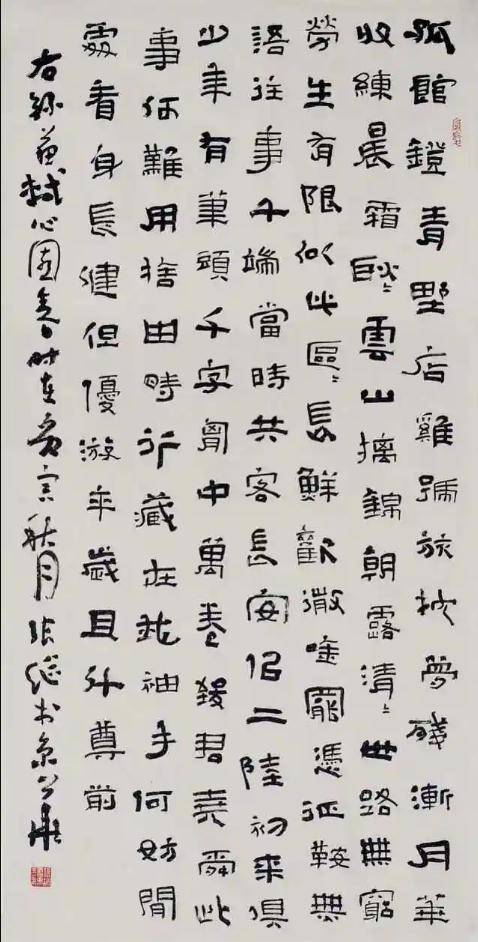 孤館鐙青野店雞號旅枕夢殘漸月華
收練晨霜耿〻雲山摛錦朝露清〻世路無窮
勞生有限似此區〻長鮮歡微唫罷憑征鞍無
語往事千端當時共客長安似二陸初來俱
少年有筆頭千字胷中萬卷致君堯舜此
事何難用捨由時行藏在我袖手何妨閒
處看身長健但優游卒歲且斗尊前
右録蘇軾心園春時在秋月張继於京華